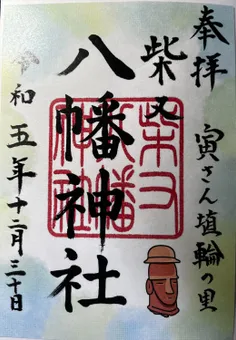 奉拝
寅さん埴輪の里
柴又
八幡神社
令和五年十二月三十日
柴又八幡神社